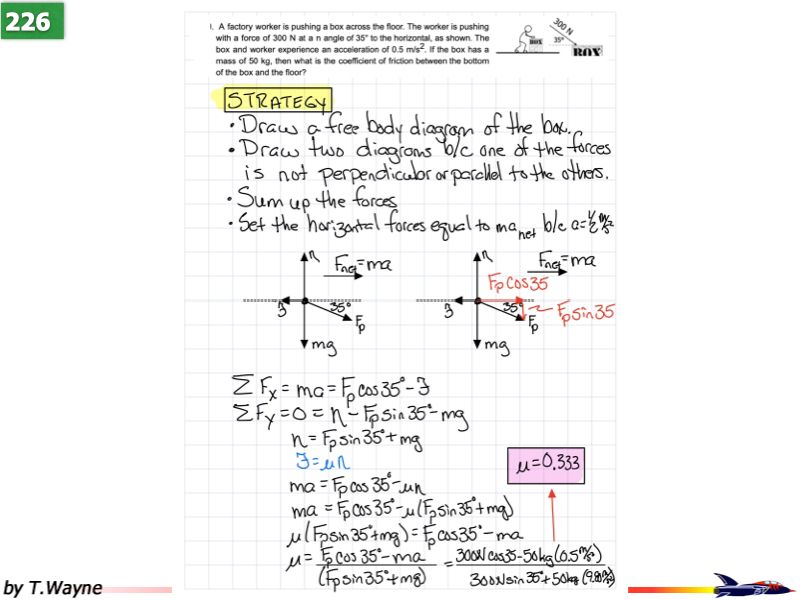 226
1. A factory worker is pushing a box across the floor. The worker is pushing
with a force of 300 N at a n angle of 35° to the horizontal, as shown. The
box and worker experience an acceleration of 0.5 m/s². If the box has a
mass of 50 kg, then what is the coefficient of friction between the bottom
of the box and the floor?
BOX
300 N
35°
BOX
STRATEGY
• Draw a free body diagram of the box.
• Draw two diagrams b/c one of the forces
is not perpendicular or parallel to the others.
• Sum up the forces
• Set the horizontal forces equal to ma net b/c a=½ m/s²
n
Fnet=ma
ℱ
35°
Fp
mg
n
Fnet=ma
Fp cos35
ℱ
35°
Fp
Fp sin35
mg
ΣFx = ma = Fp cos35° - ℱ
ΣFy = 0 = n - Fp sin35° - mg
n = Fp sin35° + mg
ℱ = μn
ma = Fp cos35° - μn
ma = Fp cos35° - μ(Fp sin35° + mg)
μ(Fp sin35° + mg) = Fp cos35° - ma
μ = Fp cos35° - ma / (Fp sin35° + mg) = 300N cos35 - 50kg(0.5 m/s²) / 300N sin35° + 50kg (9.8 m/s²)
μ=0.333
by T.Wayne